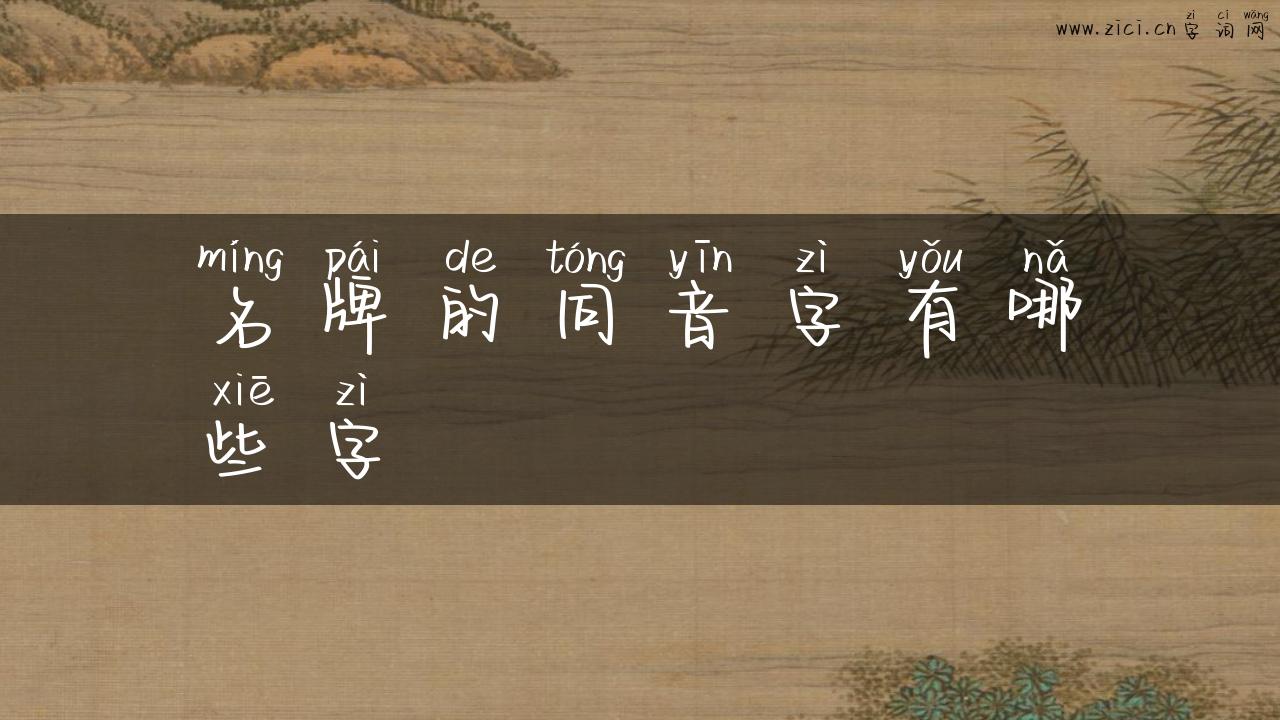 zì cí wǎng
www.zici.cn 字 词 网
míng pái de tóng yīn zì yǒu nǎ
名 牌 的 同 音 字 有 哪
xiē zì
些 字